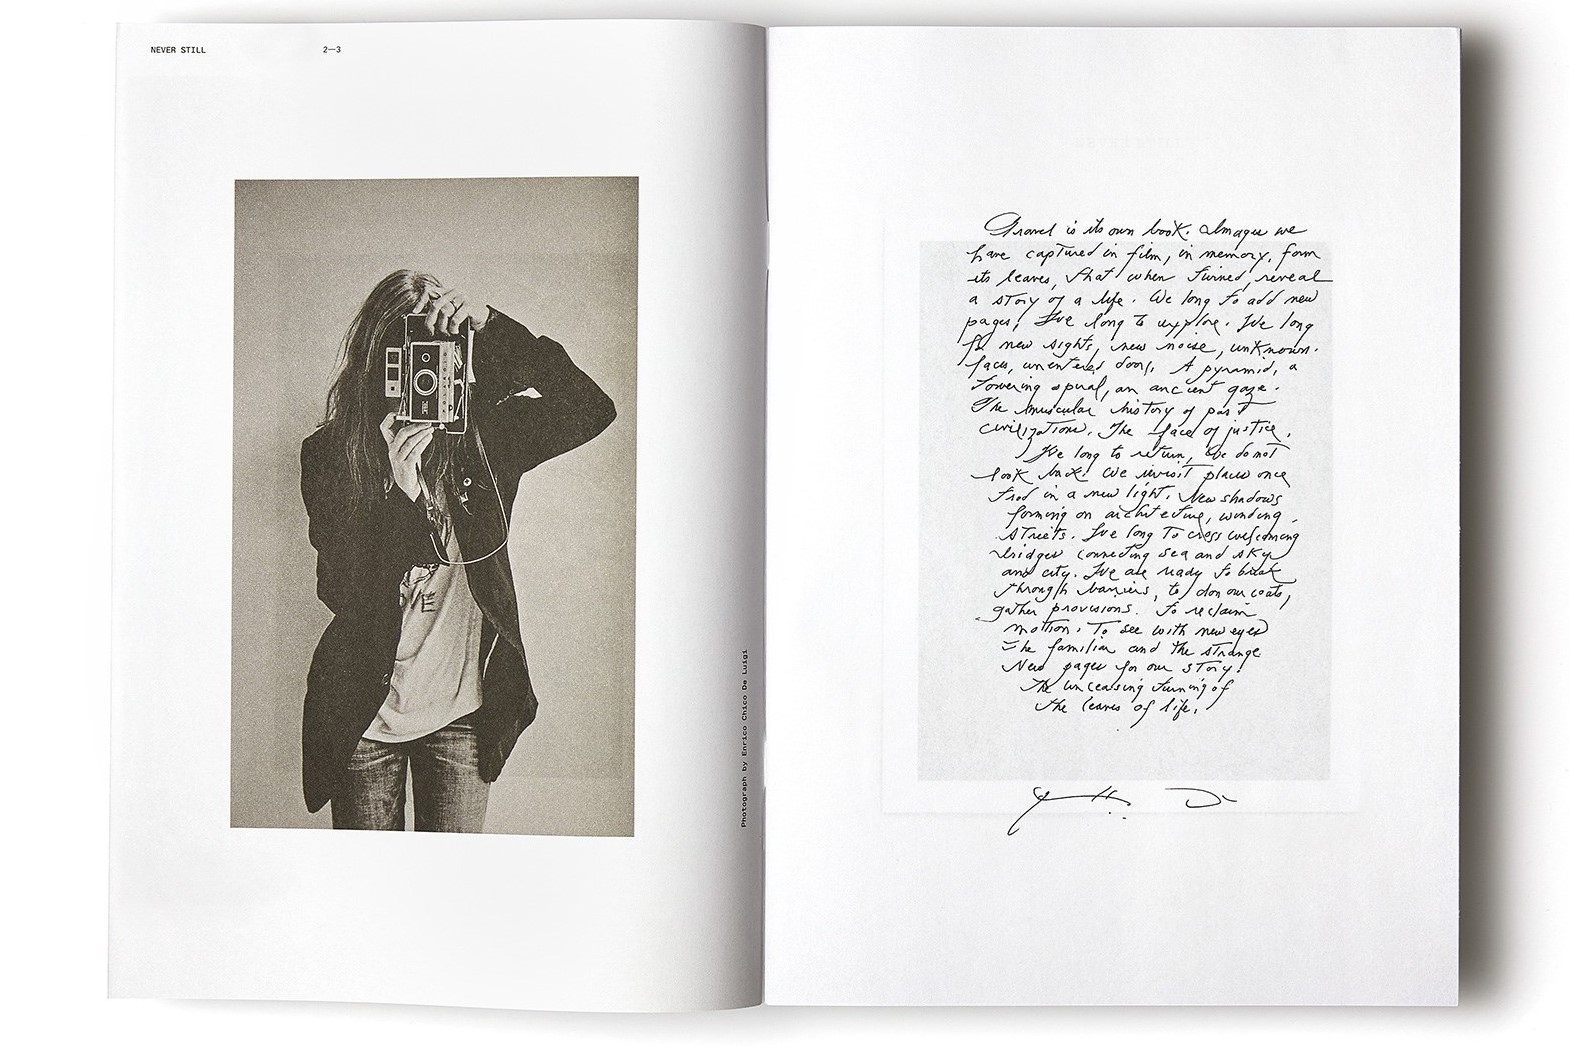 NEVER STILL 2—3
Photograph by Enrico Chico De Luigi
Travel is its own book. Images we
have captured in film, in memory, form
its leaves, that when turned, reveal
a story of a life. We long to add new
pages. We long to explore. We long
for new sights, new noise, unknown
faces, unentered doors. A pyramid, a
towering spiral, an ancient gaze.
The muscular history of past
civilizations. The face of justice.
We long to return, we do not
look back. We revisit places once
trod in a new light. New shadows
forming on architecture, winding
streets. We long to cross welcoming
bridges connecting sea and sky
and city. We are ready to break
through barriers, to don our coats,
gather provisions. To reclaim
motion. To see with new eyes
the familiar and the strange.
New pages for our story.
The unceasing turning of
the leaves of life.